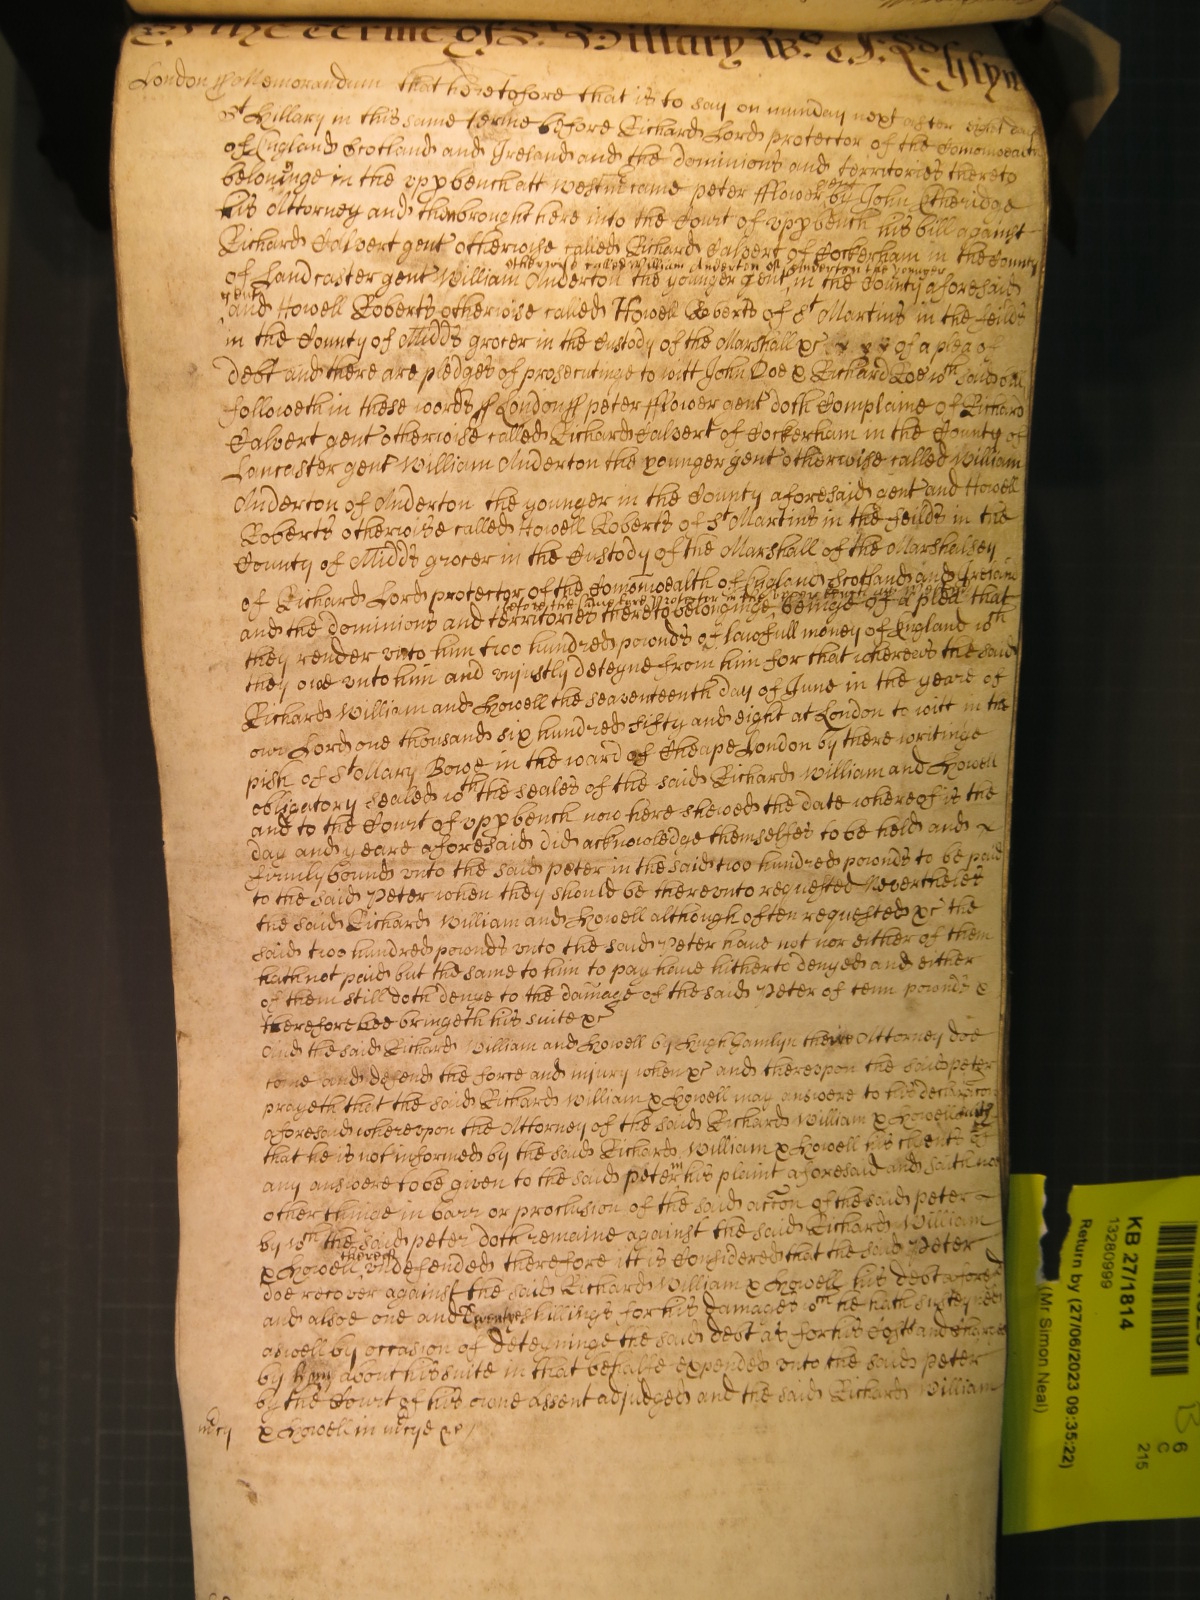 the terme of St Hillary
London ss Memorandum that heretofore that is to say on munday next after eight daies
St Hillary in this same terme before Richard Lord protector of the Comonwealth
of England Scotland and Ireland and the dominions and territories thereto
belonginge in the vpp bench att westmr came peter fflower gent by John Etheridge
his Attorney and then brought here into the Court of vpp bench his bill against
Richard Calvert gent otherwise called Richard Calvert of Cockerham in the County
otherwise called William Anderton of Anderton the younger
of Landcaster gent William Anderton the younger gent in the County aforesaid
gent
and Howell Roberts otherwise called Howell Roberts of St Martins in the feilds
in the County of Midds grocer in the Custody of the Marshall &c of a plea of
debt and there are pledges of prosecutinge to witt John Doe & Richard Roe wch said bill
followeth in these words ss London ss peter fflower gent doth Complaine of Richard
Calvert gent otherwise called Richard Calvert of Cockerham in the County of
Lancaster gent William Anderton the younger gent otherwise called William
Anderton of Anderton the younger in the County aforesaid gent and Howell
Roberts otherwise called Howell Roberts of St Martins in the feilds in the
County of Midds grocer in the Custody of the Marshall of the Marshalsey
of Richard Lord protector of the Comonwealth of England Scotland and Ireland
before the same Lord Protector in the vpper bench
and the dominions and territories thereto belonginge beinge of a plea that
they render vnto him two hundred pounds of lawfull money of England wch
they owe vnto him and vniustly deteyne from him for that whereas the said
Richard William and Howell the seaventeenth day of June in the yeare of
our Lord one thousand six hundred fifty and eight at London to witt in the
pish of St Mary Bowe in the ward of Cheape London by there writinge
obligatory sealed wth the seales of the said Richard William and Howell
and to the Court of vpp bench now here shewed the date whereof is the
day and yeare aforesaid did acknowledge themselfes to be held and
firmly bound vnto the said peter in the said two hundred pounds to be paid
to the said Peter when they should be therevnto requested Neverthelesse
the said Richard William and Howell although often requested &c the
said two hundred pounds vnto the said Peter have not nor either of them
hath not paid but the same to him to pay have hitherto denyed and either
of them still doth denye to the damage of the said Peter of tenn pounds &
therefore hee bringeth his suite &c
And the said Richard William and Howell by Hugh Hamlyn theire Attorney doe
come and defend the force and iniury when &c and therevpon the said peter
prayeth that the said Richard William & Howell may answere to his declaracon
aforesaid wherevpon the Attorney of the said Richard William & Howell saith
that he is not informed by the said Richard William & Howell his clients of
any answere to be given to the said peter in his plaint aforesaid and saith noe
other thinge in barr or preclusion of the said accon of the said peter
by wch the said peter doth remaine against the said Richard William
thereof
& Howell vndefended therefore itt is Considered that the said Peter
doe recover against the said Richard William & Howell his debt aforesd
and alsoe one and twenty shillings for his damages wch he hath susteyned
aswell by occasion of deteyninge the said debt as for his Costs and charges
by him about his suite in that behalfe expended vnto the said peter
by the Court of his owne assent adjudged and the said Richard William
mercy & Howell in mercye &c
KB 27/1814
13280999
Return by (27/06/2023 09:35:22)
(Mr Simon Neal)
6
C
215